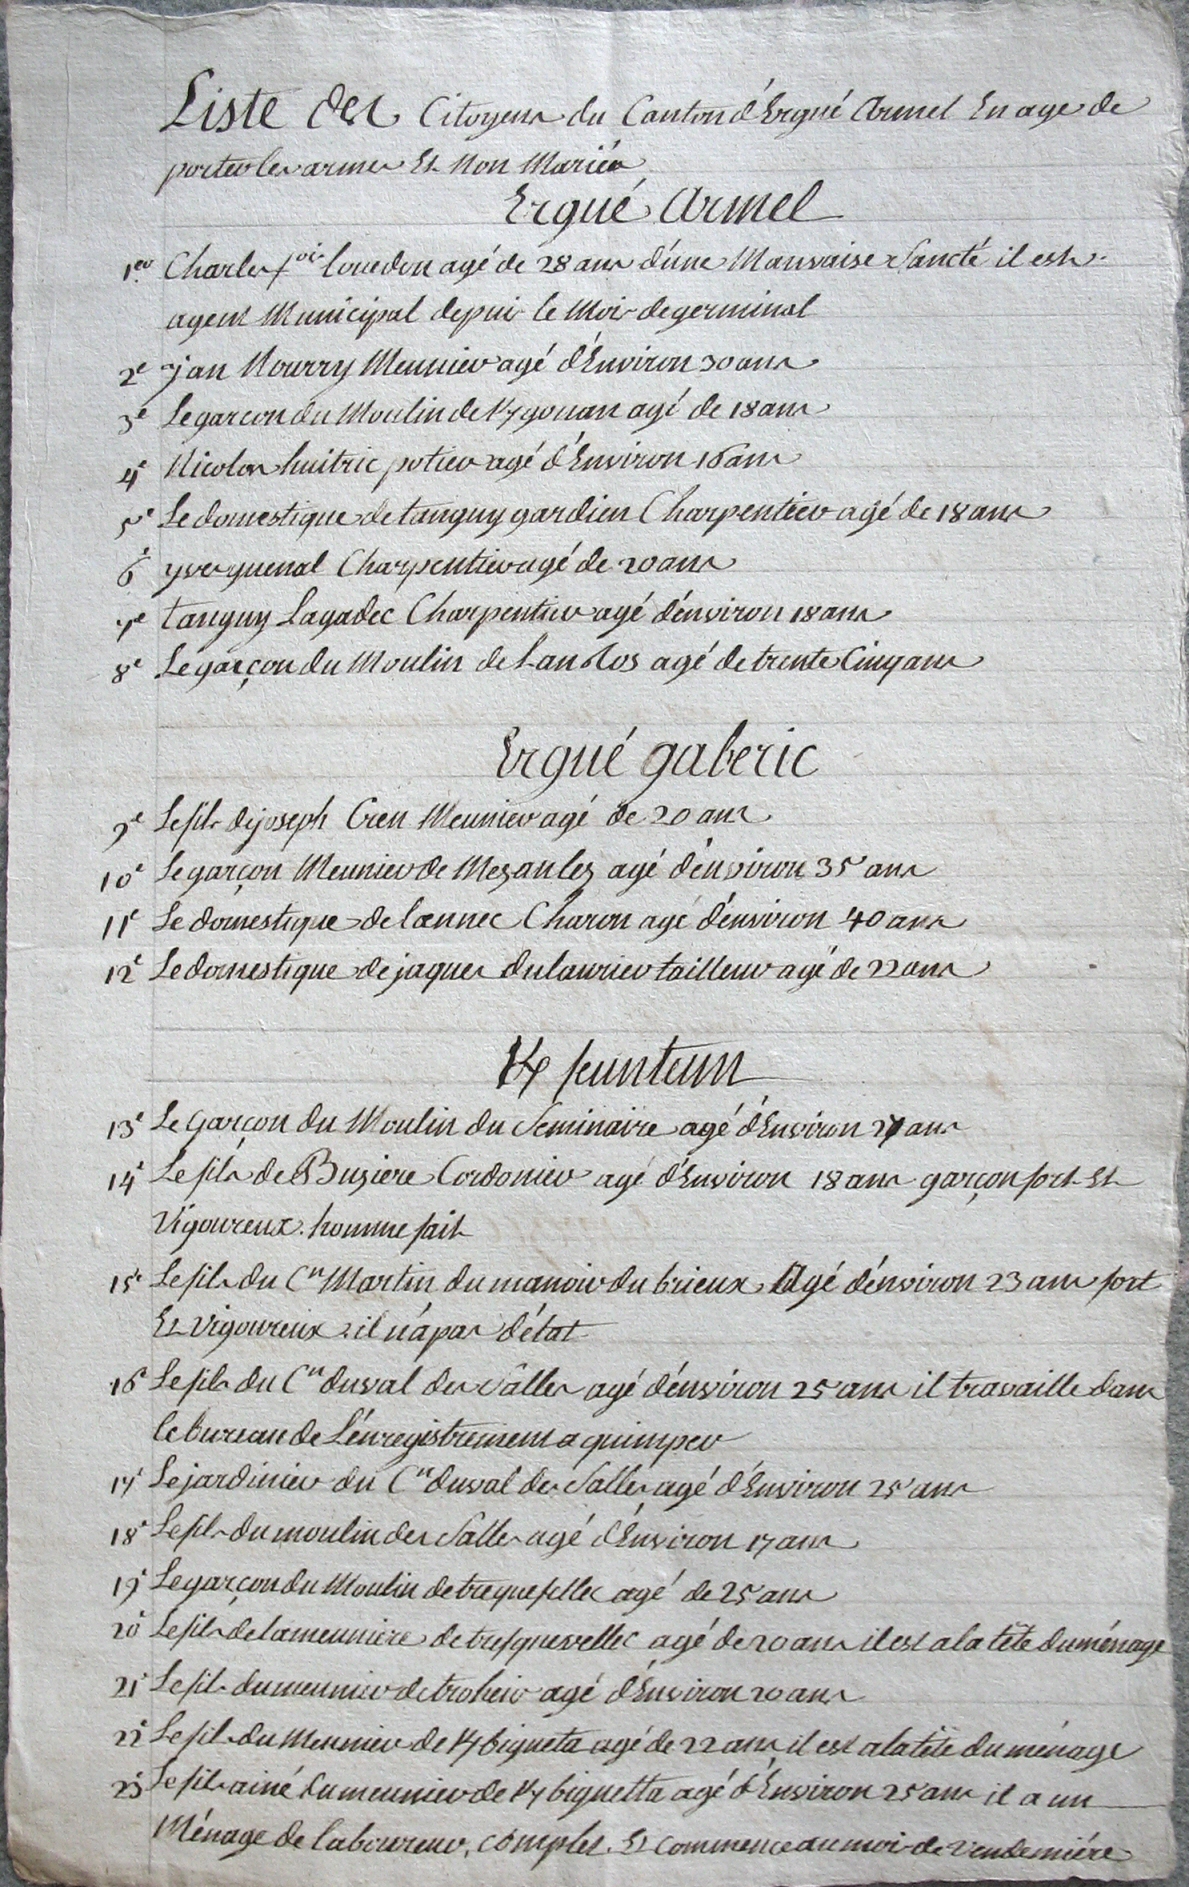 Liste des Citoyens du Canton d'Ergué Armel En age de
porter les armes Et Non Mariés
Ergué Armel
1er Charles fois louedon agé de 28 ans d'une Mauvaise Sancté il est
agent Municipal depuis le Mois de germinal
2e jan Nourry Meunier agé d'Environ 30 ans
3e Le garçon du Moulin de K/gonan agé de 18 ans
4e Nicolas huitric potier agé d'Environ 16 ans
5e Le domestique de tanguy gardien Charpentier agé de 18 ans
6e yves guenal Charpentier agé de 20 ans
7e tanguy Lagadec Charpentier agé d'environ 18 ans
8e Le garçon du Moulin de Lanros agé de trente Cinq ans
Ergué gaberic
9e Le fils de joseph Cren Meunier agé de 20 ans
10e Le garçon Meunier de Mezanlez agé d'environ 35 ans
11e Le domestique de lannec Charon agé d'environ 40 ans
12e Le domestique de jaques dulaurier tailleur agé de 22 ans
K/ feunteun
13e Le garçon du Moulin du Seminaire agé d'Environ 27 ans
14e Le fils de Buziere Cordonier agé d'Environ 18 ans garçon fort Et
Vigoureux. homme fait
15e Le fils du Cn Martin du manoir du brieux Agé d'environ 23 ans fort
Et Vigoureux. il n'a pas d'état
16e Le fils du Cn duval des Salles agé d'environ 25 ans il travaille dans
le bureau de L'enregistrement a quimper
17e Le jardinier du Cn duval des Salles agé d'Environ 25 ans
18e Le fils du moulin des Salles agé d'Environ 17 ans
19e Le garçon du Moulin de agé de 25 ans
20e Le fils de la meuniere de agé de 20 ans il est a la tête du ménage
21e Le fils du meunier de troheir agé d'Environ 20 ans
22e Le fils du Meunier de K/bigueta agé de 22 ans il est a la tête du ménage
23e Le fils ainé du meunier de K/biguetta agé d'Environ 25 ans il a un
Ménage de laboureur, complet. Et Commence au mois de Vendemiére